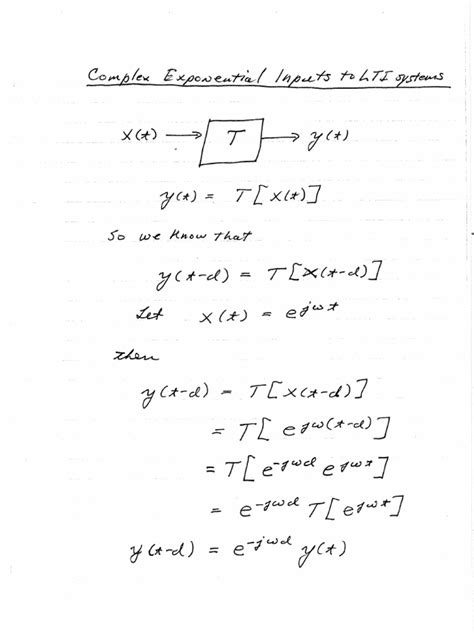 Complex Exponential Inputs to LTI systems
x(t) → T → y(t)
y(t) = T[x(t)]
So we know that
y(t-d) = T[x(t-d)]
Let x(t) = e^{jωt}
then
y(t-d) = T[x(t-d)]
= T[e^{jω(t-d)}]
= T[e^{-jωd} e^{jωt}]
= e^{-jωd} T[e^{jωt}]
y(t-d) = e^{-jωd} y(t)